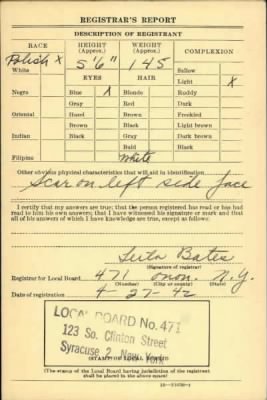 REGISTRAR'S REPORT
DESCRIPTION OF REGISTRANT
RACE HEIGHT (Approx.) WEIGHT (Approx.) COMPLEXION
Polish x 5'6" 145
White Sallow
EYES HAIR Light X
Negro Blue X Blonde Ruddy
Gray Red Dark
Oriental Hazel Brown Freckled
Brown Black Light brown
Indian Black Gray Dark brown
Bald Black
Filipino White
Other obvious physical characteristics that will aid in identification
Scar on left side face
I certify that my answers are true; that the person registered has read or has had
read to him his own answers; that I have witnessed his signature or mark and that
all of his answers of which I have knowledge are true, except as follows:
Bates
(Signature of registrar)
Registrar for Local Board 471 Onon. N.Y.
(Number) (City or county) (State)
Date of registration 4-27-42
LOCAL BOARD No. 471
123 So. Clinton Street
Syracuse 2, New York
(STAMP OF LOCAL BOARD)
(The stamp of the Local Board having jurisdiction of the registrant
shall be placed in the above space)